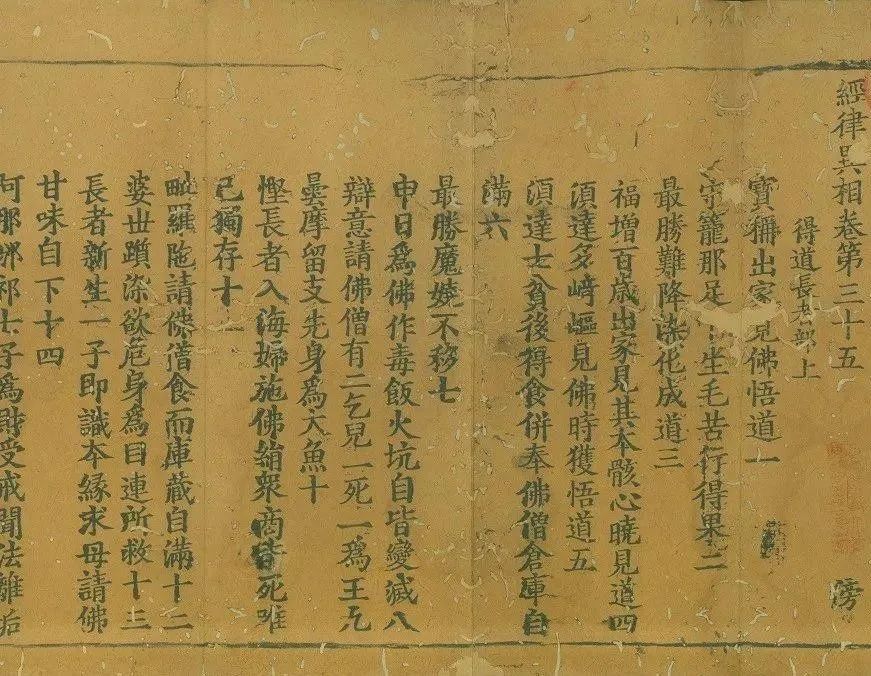 經律異相卷第三十五
傍
得道長者部上
寶稱出家見佛悟道一
守籠那足下生毛苦行得果二
最勝難降染化成道三
福增百歲出家見其本骸心曉見道四
湏達多崎嶇見佛時獲悟道五
湏達七貧後得食併奉佛僧倉庫自
滿六
最勝魔嬈不移七
申日爲佛作毒飯火坑自皆變滅八
辯意請佛僧有二乞兒一死一爲王九
曇摩留支先身爲大魚十
慳長者入海婦施佛絹衆商皆死唯
己獨存十一
毗羅陁請佛僧食而庫藏自滿十二
婆世躓染欲危身爲目連所救十三
長者新生一子即識本緣求母請佛
甘味自下十四
七子爲財受戒聞法離垢